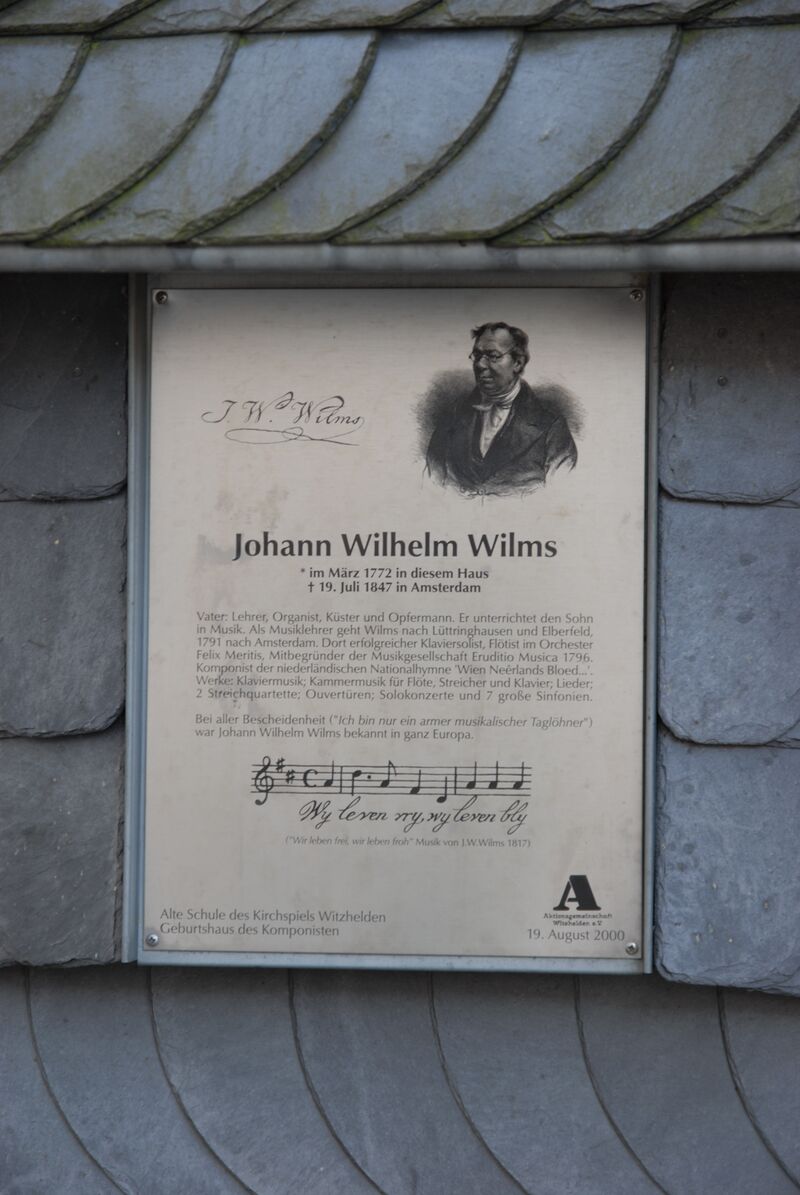 J. W. Wilms
Johann Wilhelm Wilms
* im März 1772 in diesem Haus
† 19. Juli 1847 in Amsterdam
Vater: Lehrer, Organist, Küster und Opfermann. Er unterrichtet den Sohn
in Musik. Als Musiklehrer geht Wilms nach Lüttringhausen und Elberfeld,
1791 nach Amsterdam. Dort erfolgreicher Klaviersolist, Flötist im Orchester
Felix Meritis, Mitbegründer der Musikgesellschaft Eruditio Musica 1796.
Komponist der niederländischen Nationalhymne 'Wien Neêrlands Bloed...'.
Werke: Klaviermusik; Kammermusik für Flöte, Streicher und Klavier; Lieder;
2 Streichquartette; Ouvertüren; Solokonzerte und 7 große Sinfonien.
Bei aller Bescheidenheit ("Ich bin nur ein armer musikalischer Taglöhner")
war Johann Wilhelm Wilms bekannt in ganz Europa.
Wy leven vry, wy leven bly
("Wir leben frei, wir leben froh" Musik von J.W.Wilms 1817)
A
Aktionsgemeinschaft
Witzhelden e.V.
Alte Schule des Kirchspiels Witzhelden
Geburtshaus des Komponisten
19. August 2000